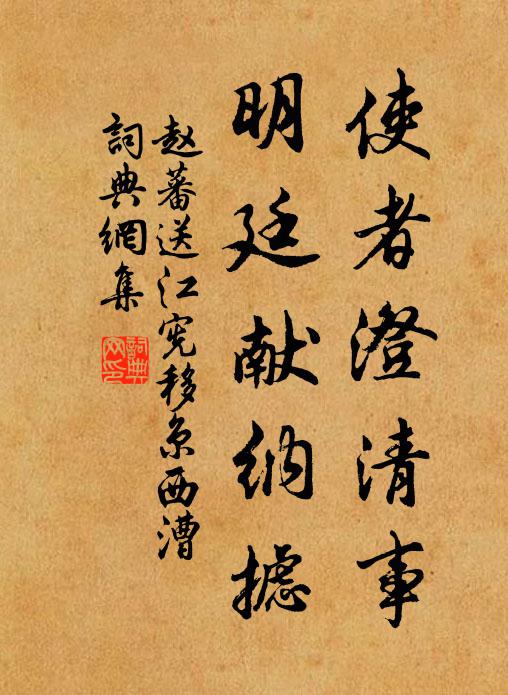 使者澄清事
明廷献纳摅
赵蕃送江宪移京西漕
詞典網集